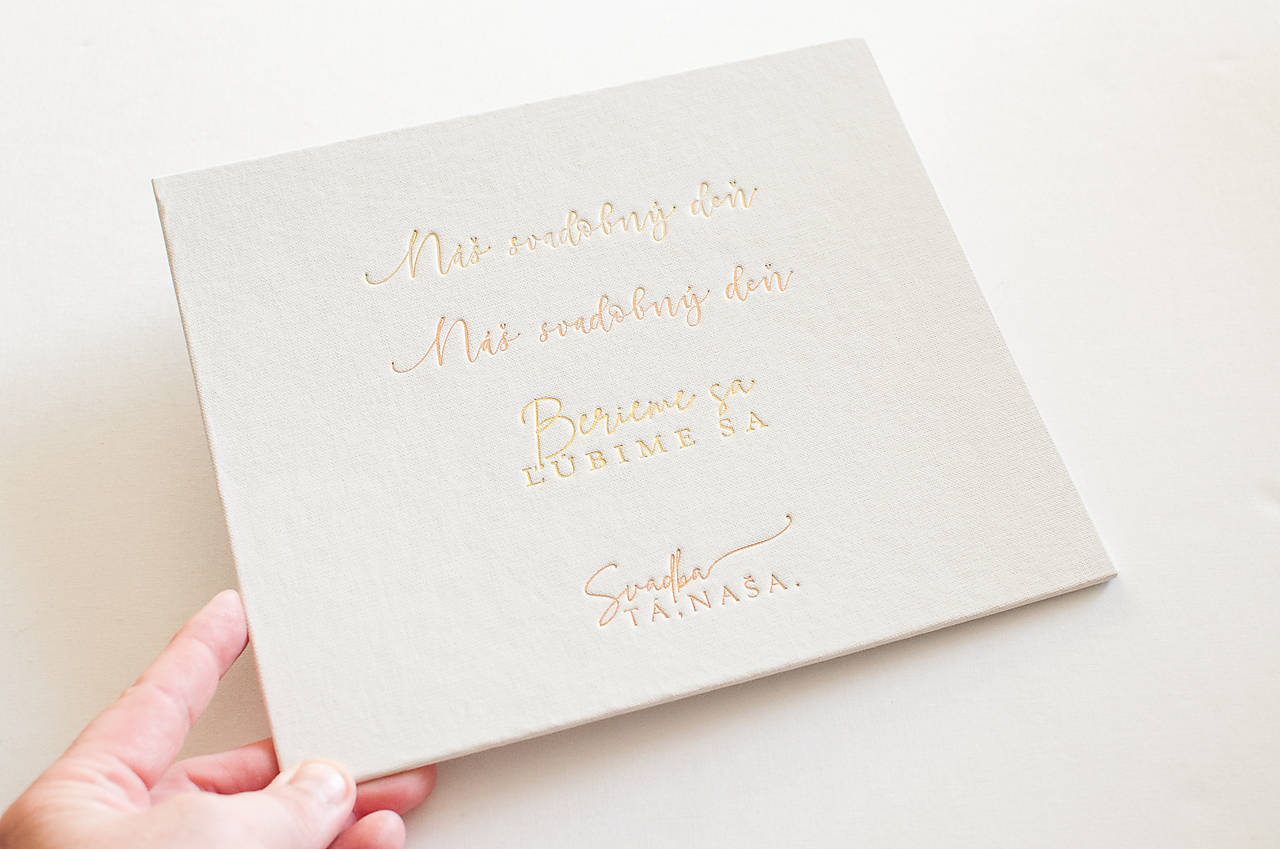 Náš svadobný deň
Náš svadobný deň
Berieme sa
ĽÚBIME SA
Svadba
TÁ, NAŠA.